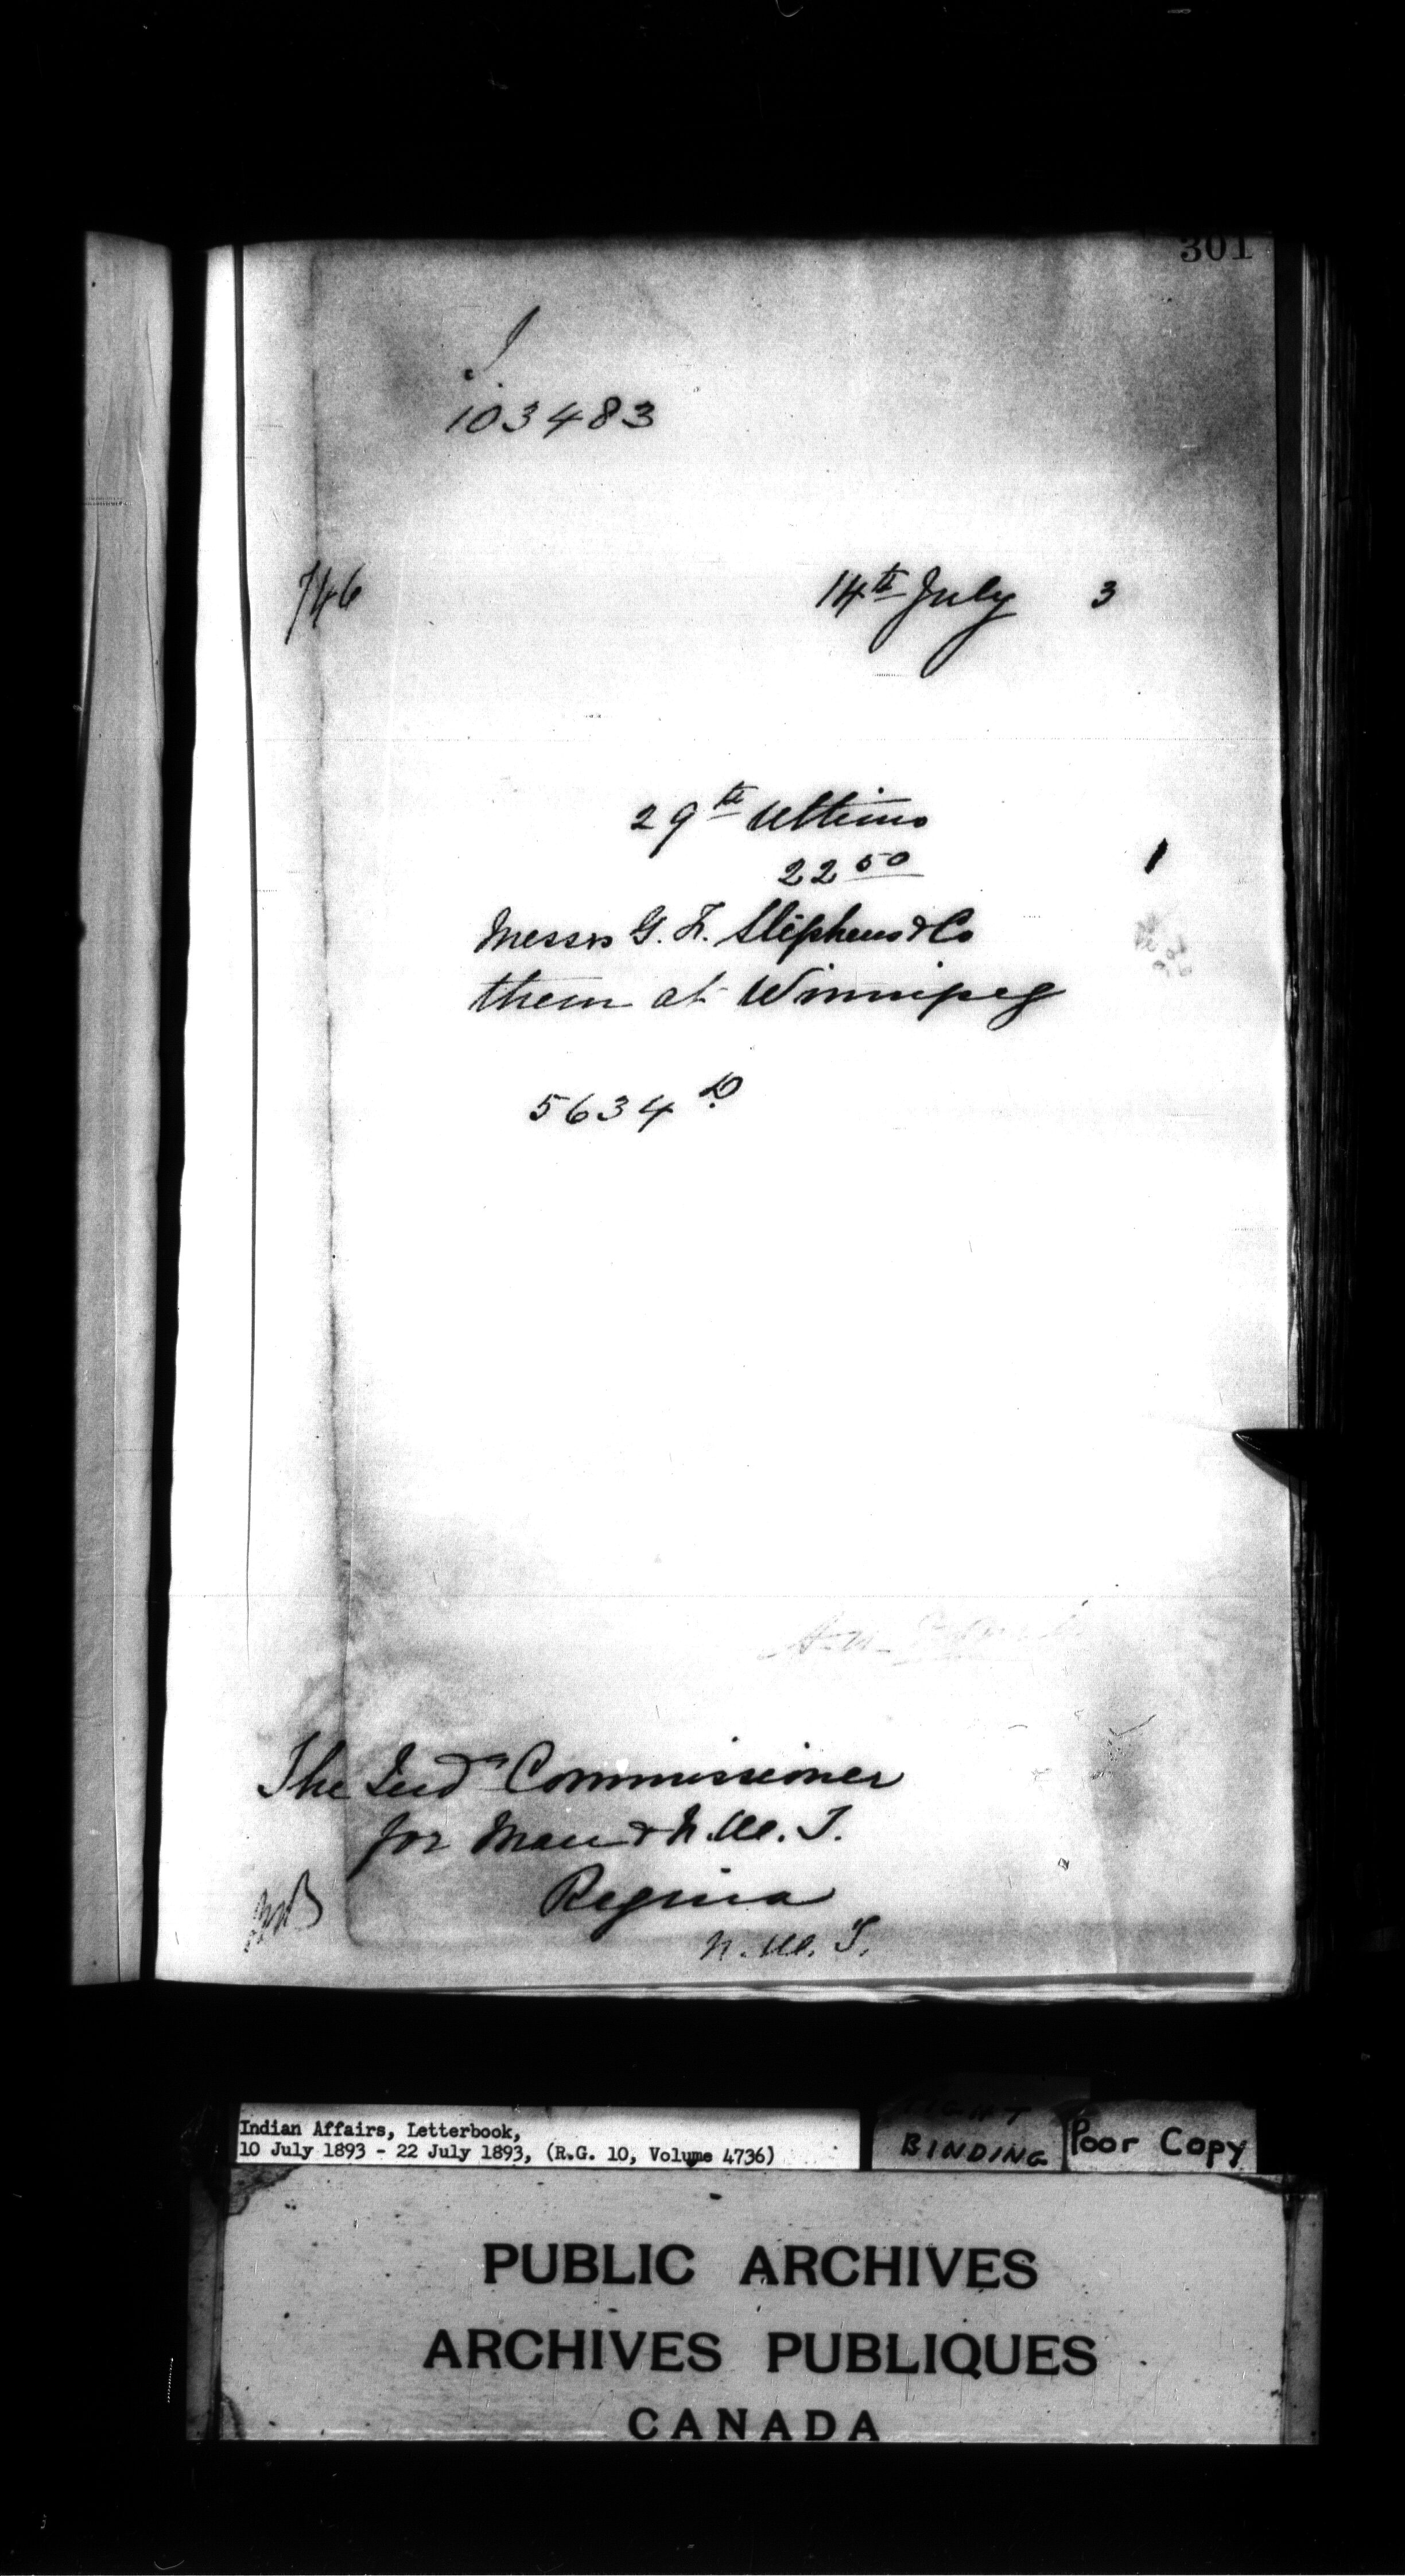 301
103483
746
14th July 3
29th Ultimo
22 50
Messrs G. F. Stephens & Co
them at Winnipeg
5634
The Indn Commissioner
for Man & N. W. T.
Regina
N. W. T.
Indian Affairs, Letterbook,
10 July 1893 - 22 July 1893, (R.G. 10, Volume 4736)
BINDING
Poor Copy
PUBLIC ARCHIVES
ARCHIVES PUBLIQUES
CANADA